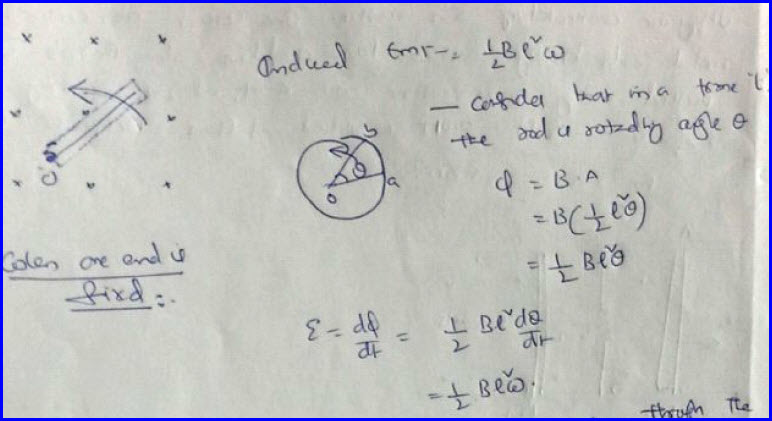 Induced Emf = 1/2 Bl²ω
— Consider that in a time 't'
the rod is rotated by angle θ
b
θ
a
o
O
φ = B.A
= B(1/2 l²θ)
= 1/2 Bl²θ
When one end is
fixd :-
ε = dφ/dt = 1/2 Bl² dθ/dt
= 1/2 Bl²ω.
through the